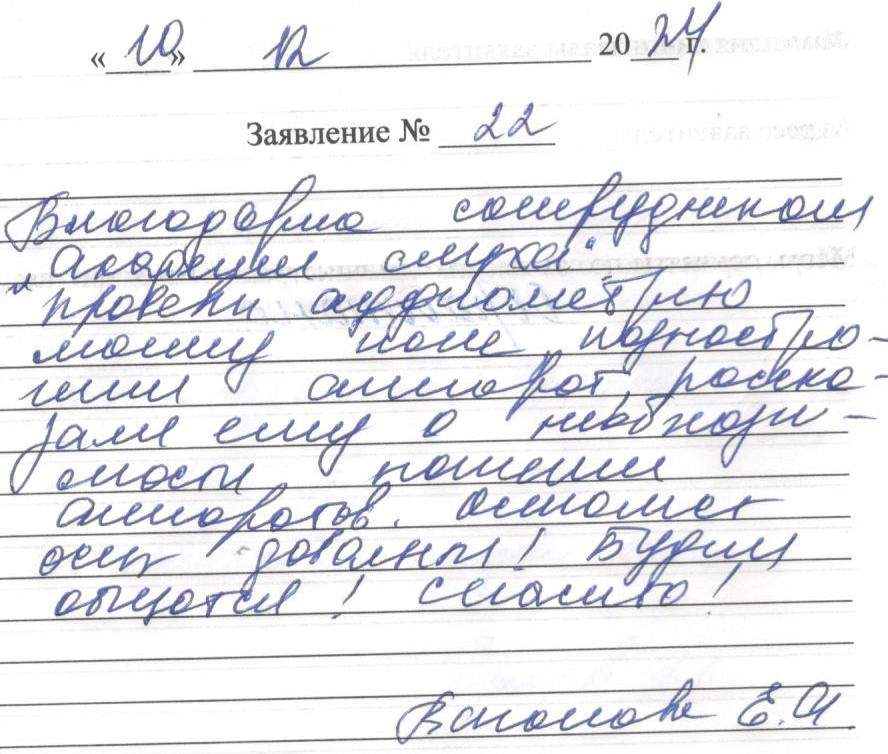 «10» 12 2024 г.
Заявление № 22
Благодарю сотрудником
"Академии слуха"
провели аудиометрию
моему папе, поднастро-
или аппарат, расска-
зали ему о необходи-
мости ношении
аппаратов. Остались
очень довольны! Будем
общатся! Спасибо!
Е.А.